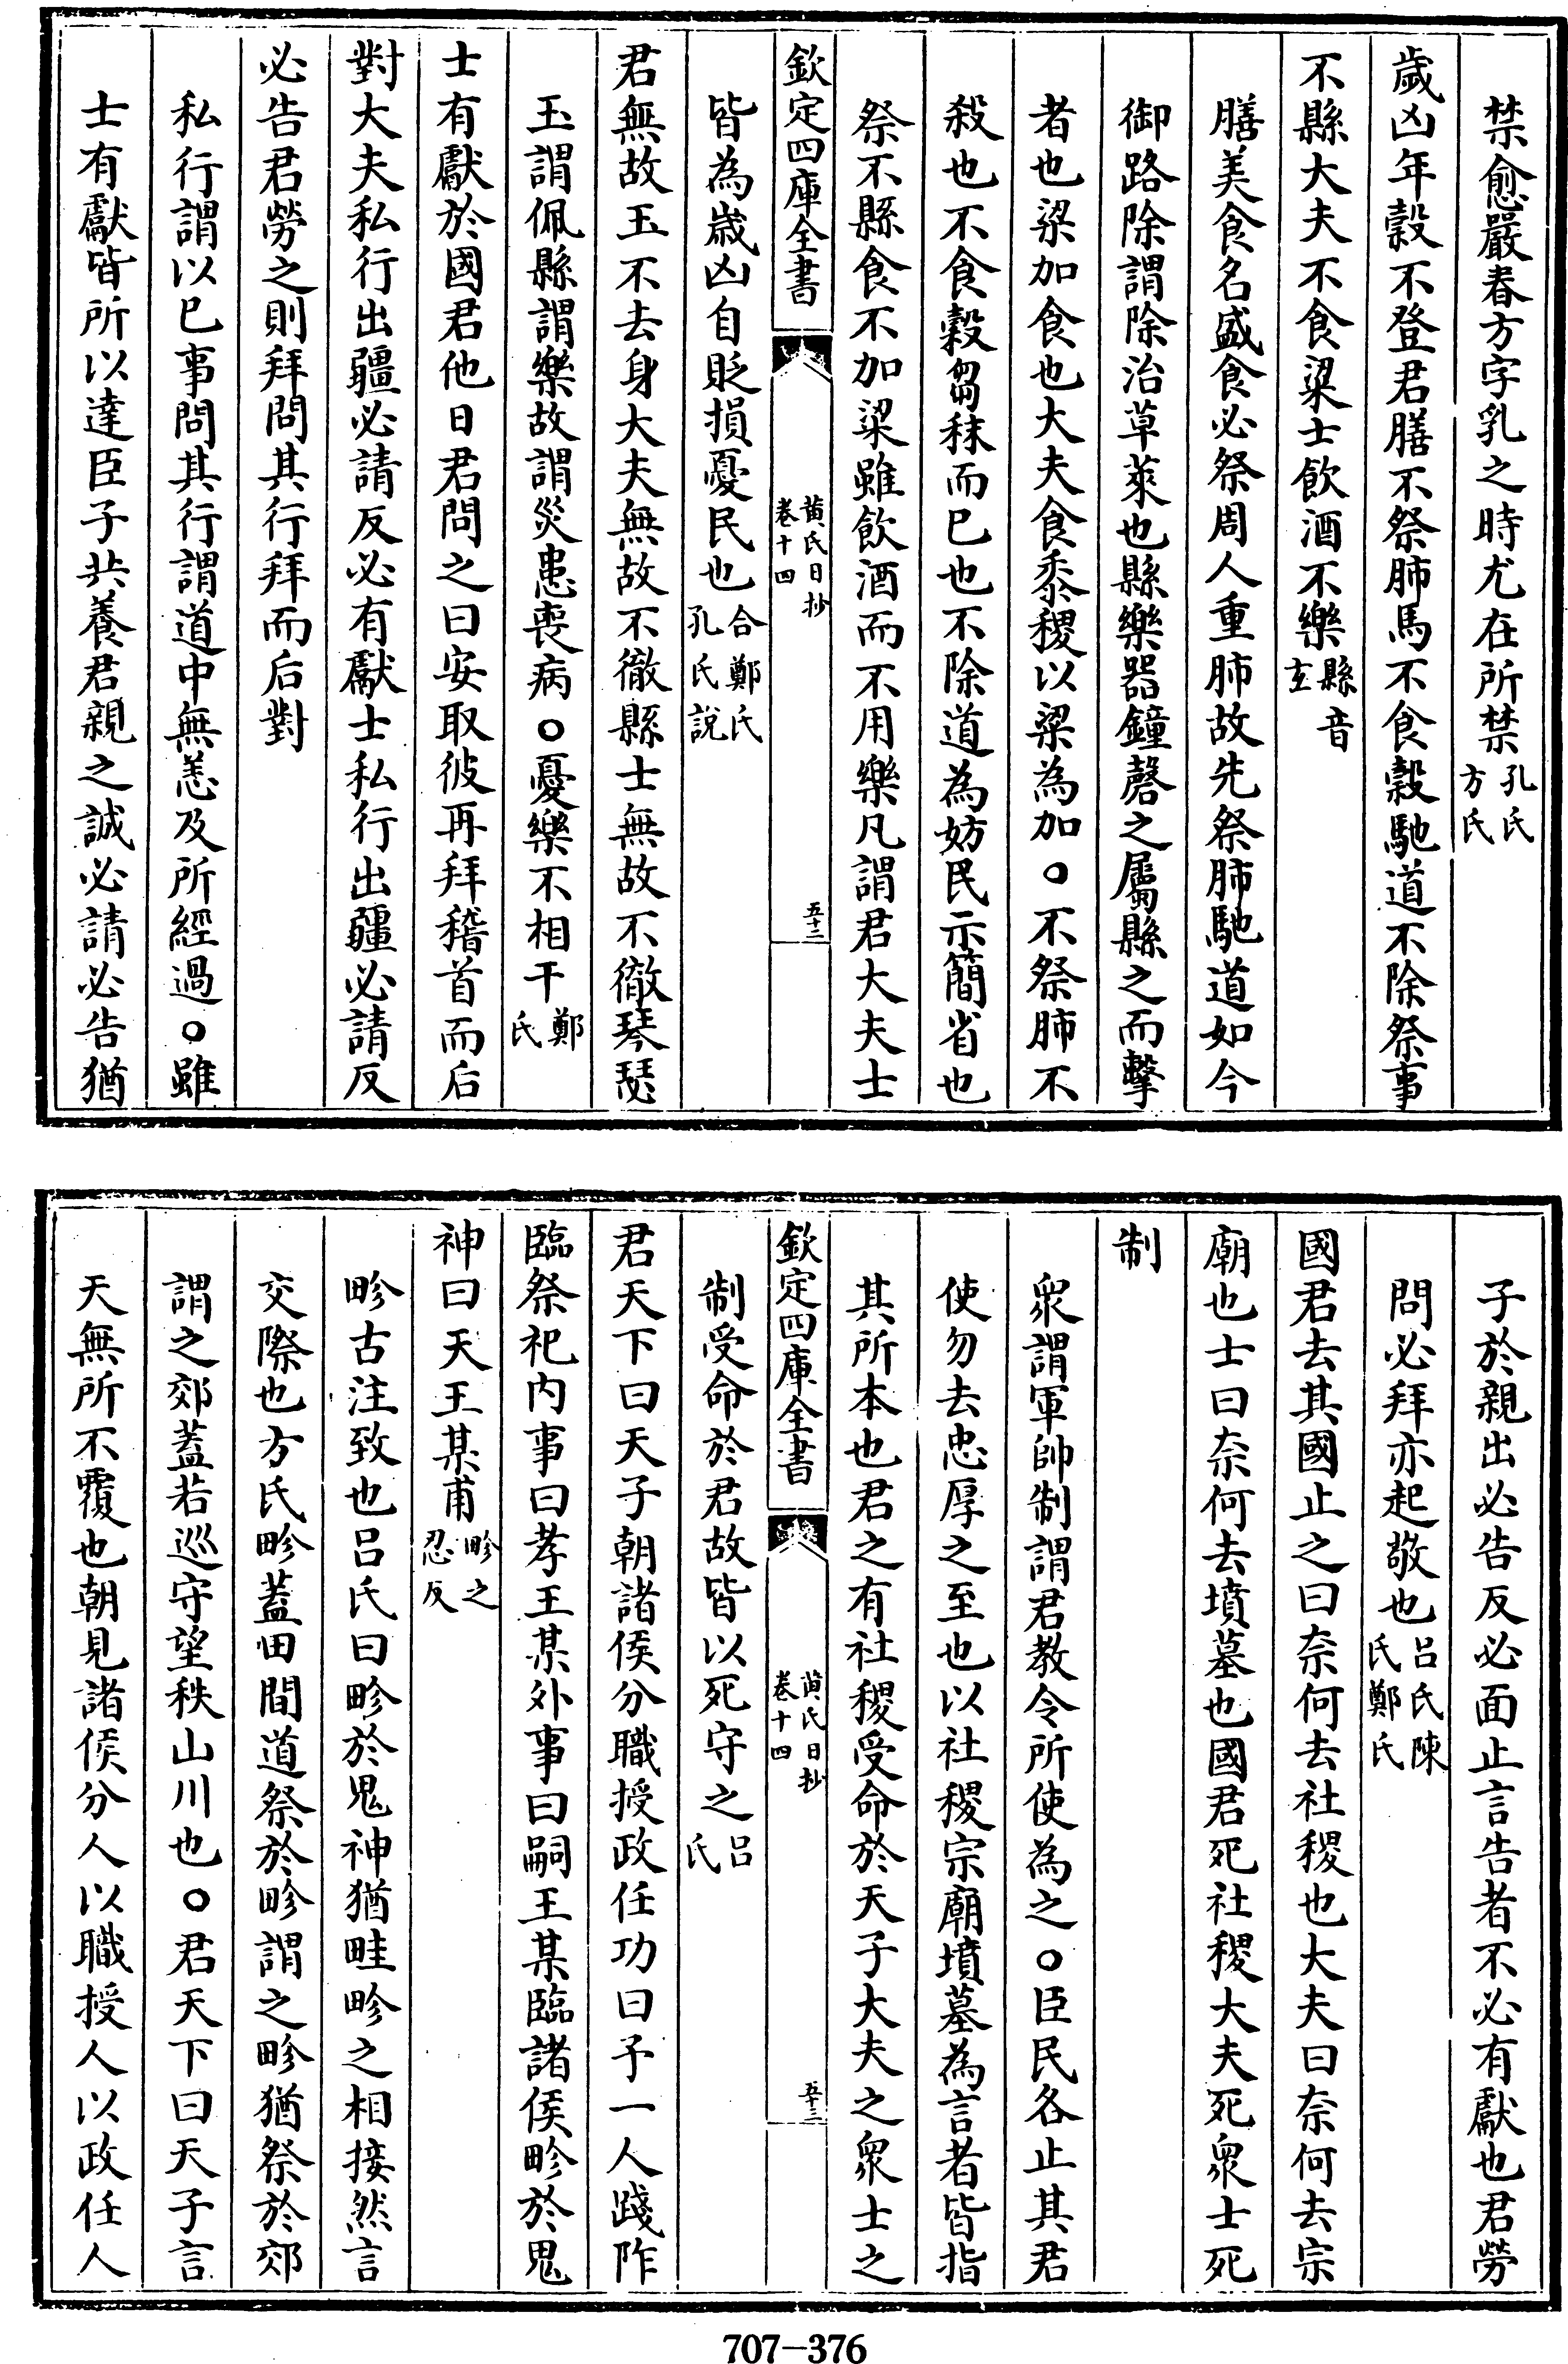 禁愈嚴春方字乳之時尤在所禁孔氏方氏
歲凶年穀不登君膳不祭肺馬不食穀馳道不除祭事
不縣大夫不食粱士飲酒不樂縣音玄
膳美食名盛食必祭周人重肺故先祭肺馳道如今
御路除謂除治草萊也縣樂器鐘磬之屬縣之而擊
者也粱加食也大夫食黍稷以粱為加○不祭肺不
殺也不食穀芻秣而已也不除道為妨民示簡省也
祭不縣食不加粱雖飲酒而不用樂凡謂君大夫士
欽定四庫全書
黃氏日抄
卷十四
五十二
皆為歲凶自貶損憂民也合鄭氏孔氏說
君無故玉不去身大夫無故不徹縣士無故不徹琴瑟
玉謂佩縣謂樂故謂災患喪病○憂樂不相干鄭氏
士有獻於國君他日君問之曰安取彼再拜稽首而后
對大夫私行出疆必請反必有獻士私行出疆必請反
必告君勞之則拜問其行拜而后對
私行謂以已事問其行謂道中無恙及所經過○雖
士有獻皆所以達臣子共養君親之誠必請必告猶
子於親出必告反必面止言告者不必有獻也君勞
問必拜亦起敬也呂氏陳氏鄭氏
國君去其國止之曰奈何去社稷也大夫曰奈何去宗
廟也士曰奈何去墳墓也國君死社稷大夫死眾士死
制
眾謂軍帥制謂君教令所使為之○臣民各止其君
使勿去忠厚之至也以社稷宗廟墳墓為言者皆指
其所本也君之有社稷受命於天子大夫之眾士之
欽定四庫全書
黃氏日抄
卷十四
五十三
制受命於君故皆以死守之呂氏
君天下曰天子朝諸侯分職授政任功曰予一人踐阼
臨祭祀內事曰孝王某外事曰嗣王某臨諸侯畛於鬼
神曰天王某甫畛之忍反
畛古注致也呂氏曰畛於鬼神猶畦畛之相接然言
交際也方氏畛蓋田間道祭於畛謂之畛猶祭於郊
謂之郊蓋若巡守望秩山川也○君天下曰天子言
天無所不覆也朝見諸侯分人以職授人以政任人
707-376